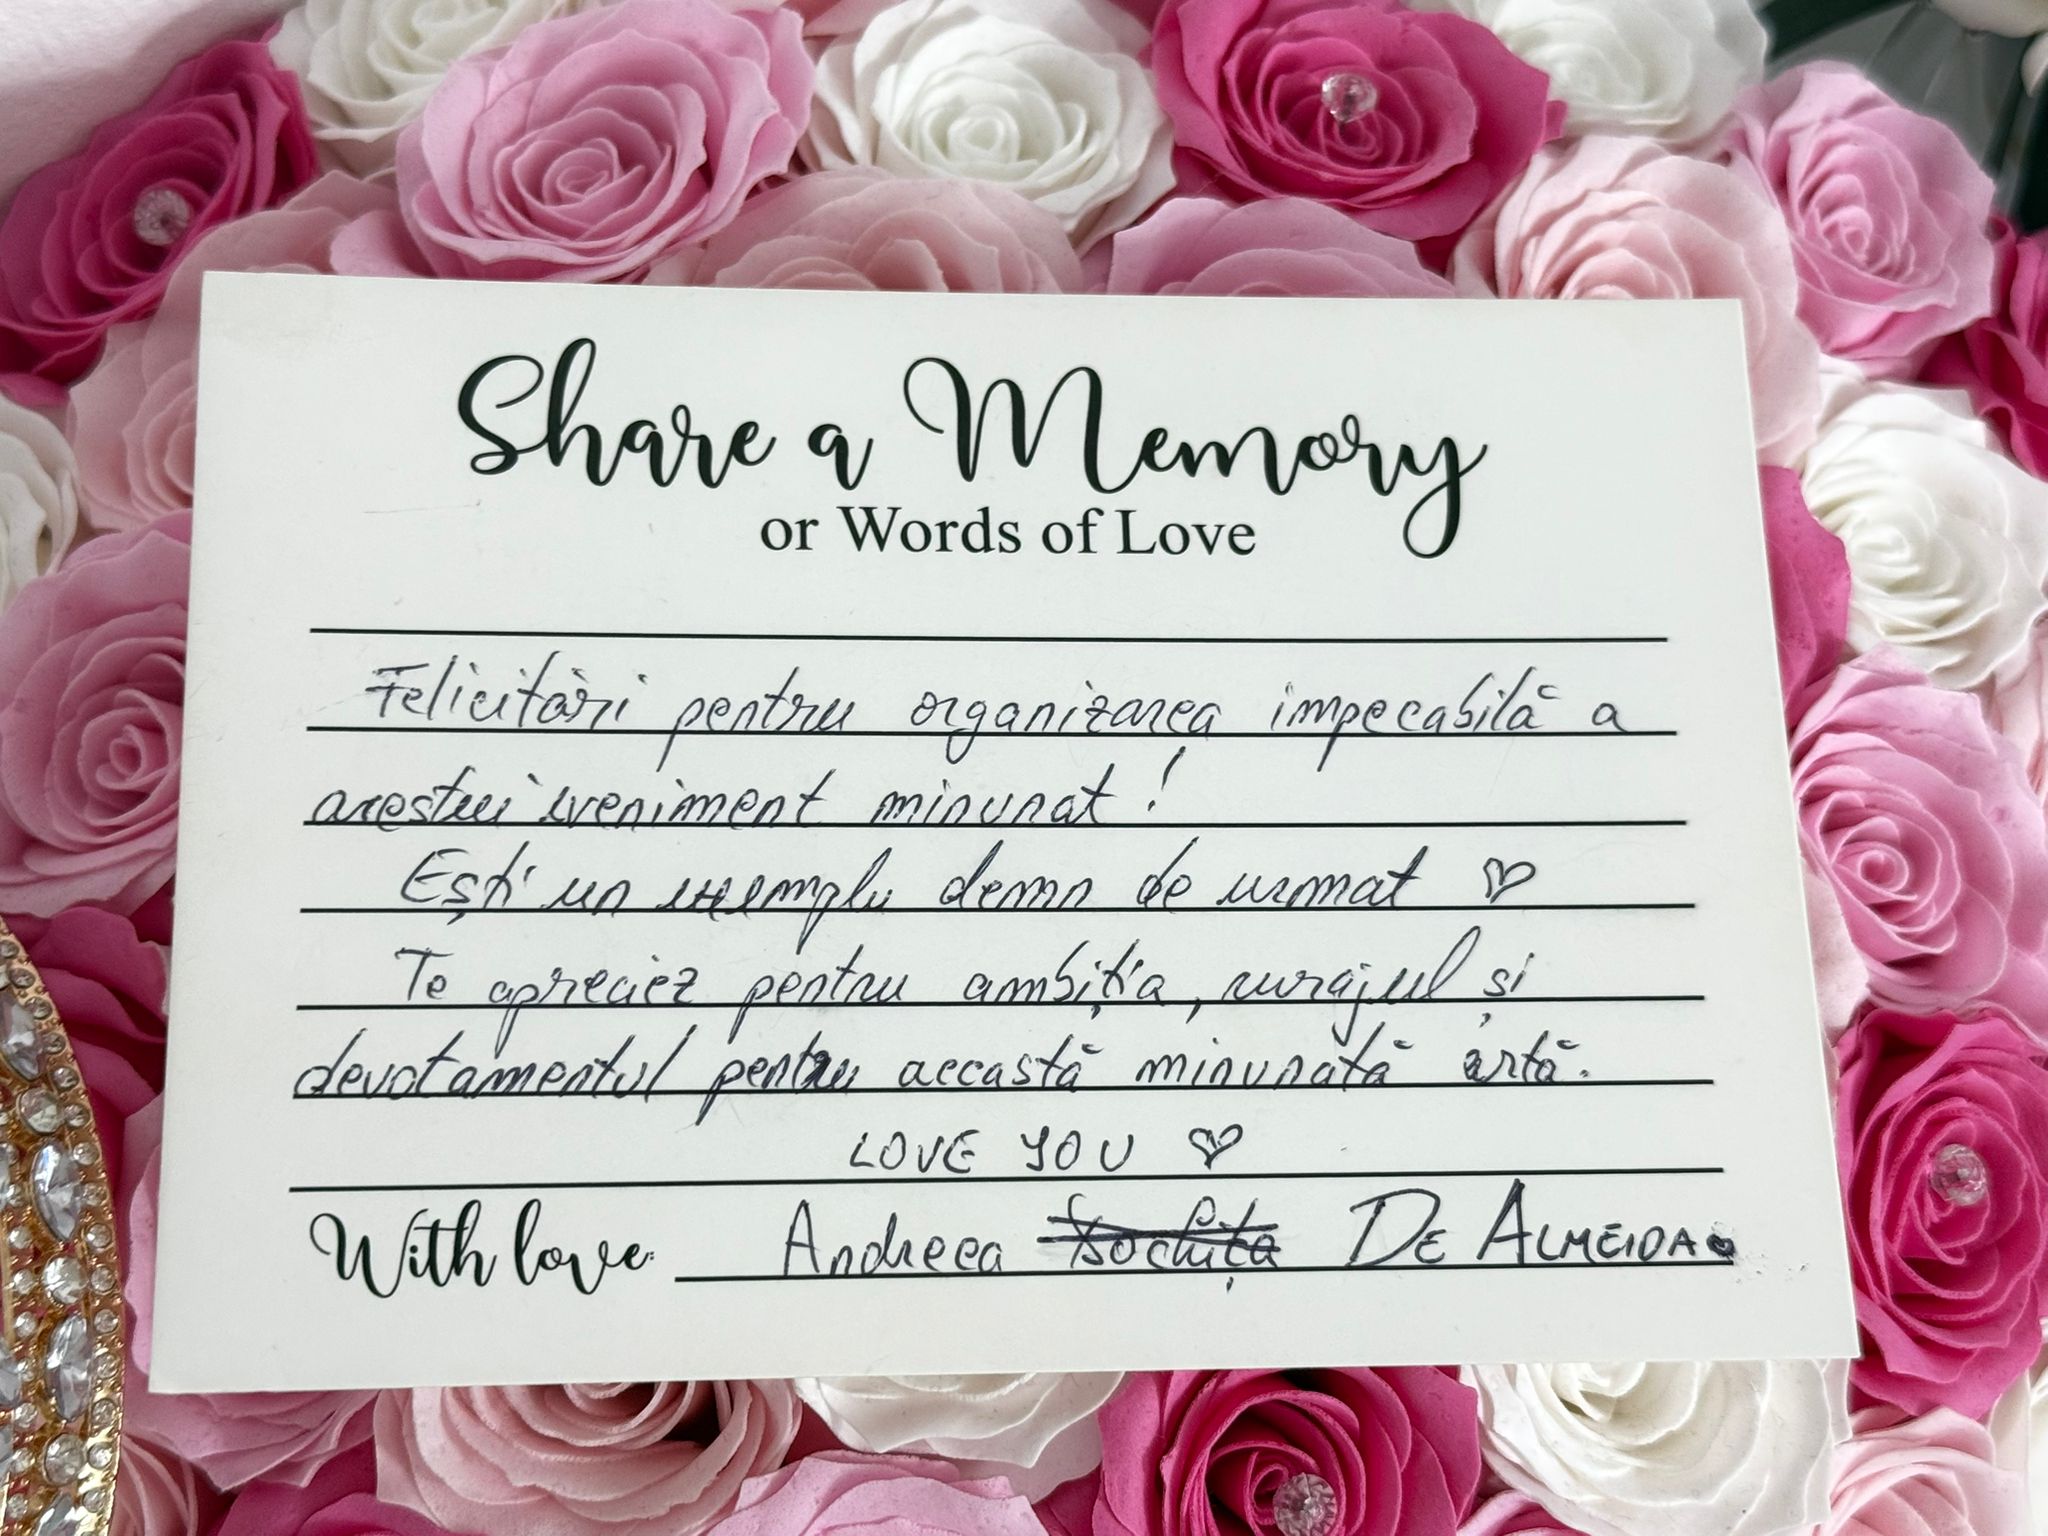 Share a Memory
or Words of Love
Felicitări pentru organizarea impecabilă a
acestui eveniment minunat!
Ești un exemplu demn de urmat ♡
Te apreciez pentru ambiția, curajul și
devotamentul pentru această minunată artă.
LOVE YOU ♡
With love: Andreea DE ALMEIDA